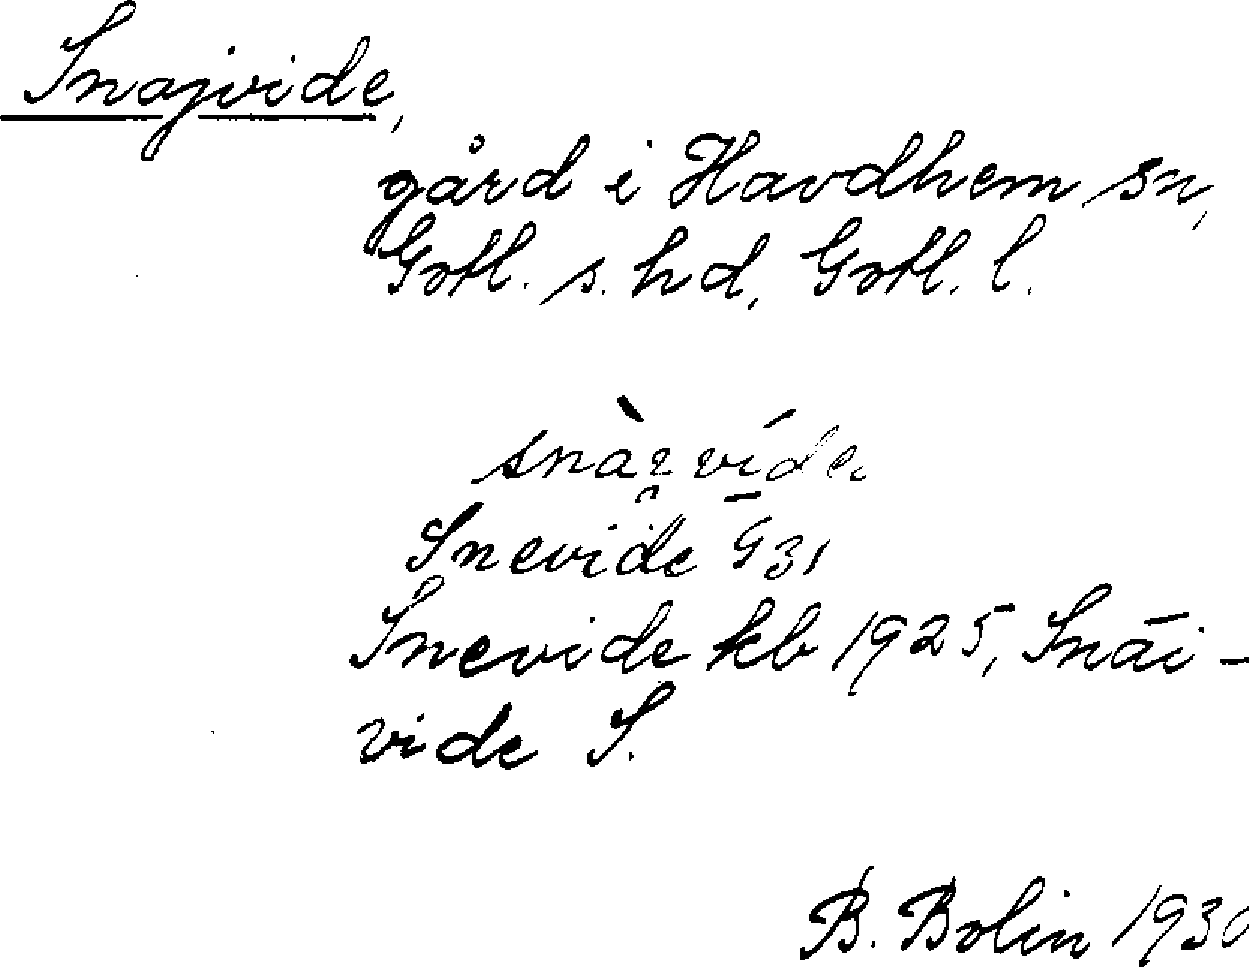 Snajvide,
gård i Havdhem sn,
Gotl. s. hd, Gotl. l.
Snevide G 31
Snevide kb 1925, Snäi-
vide S.
B. Bolin 1930